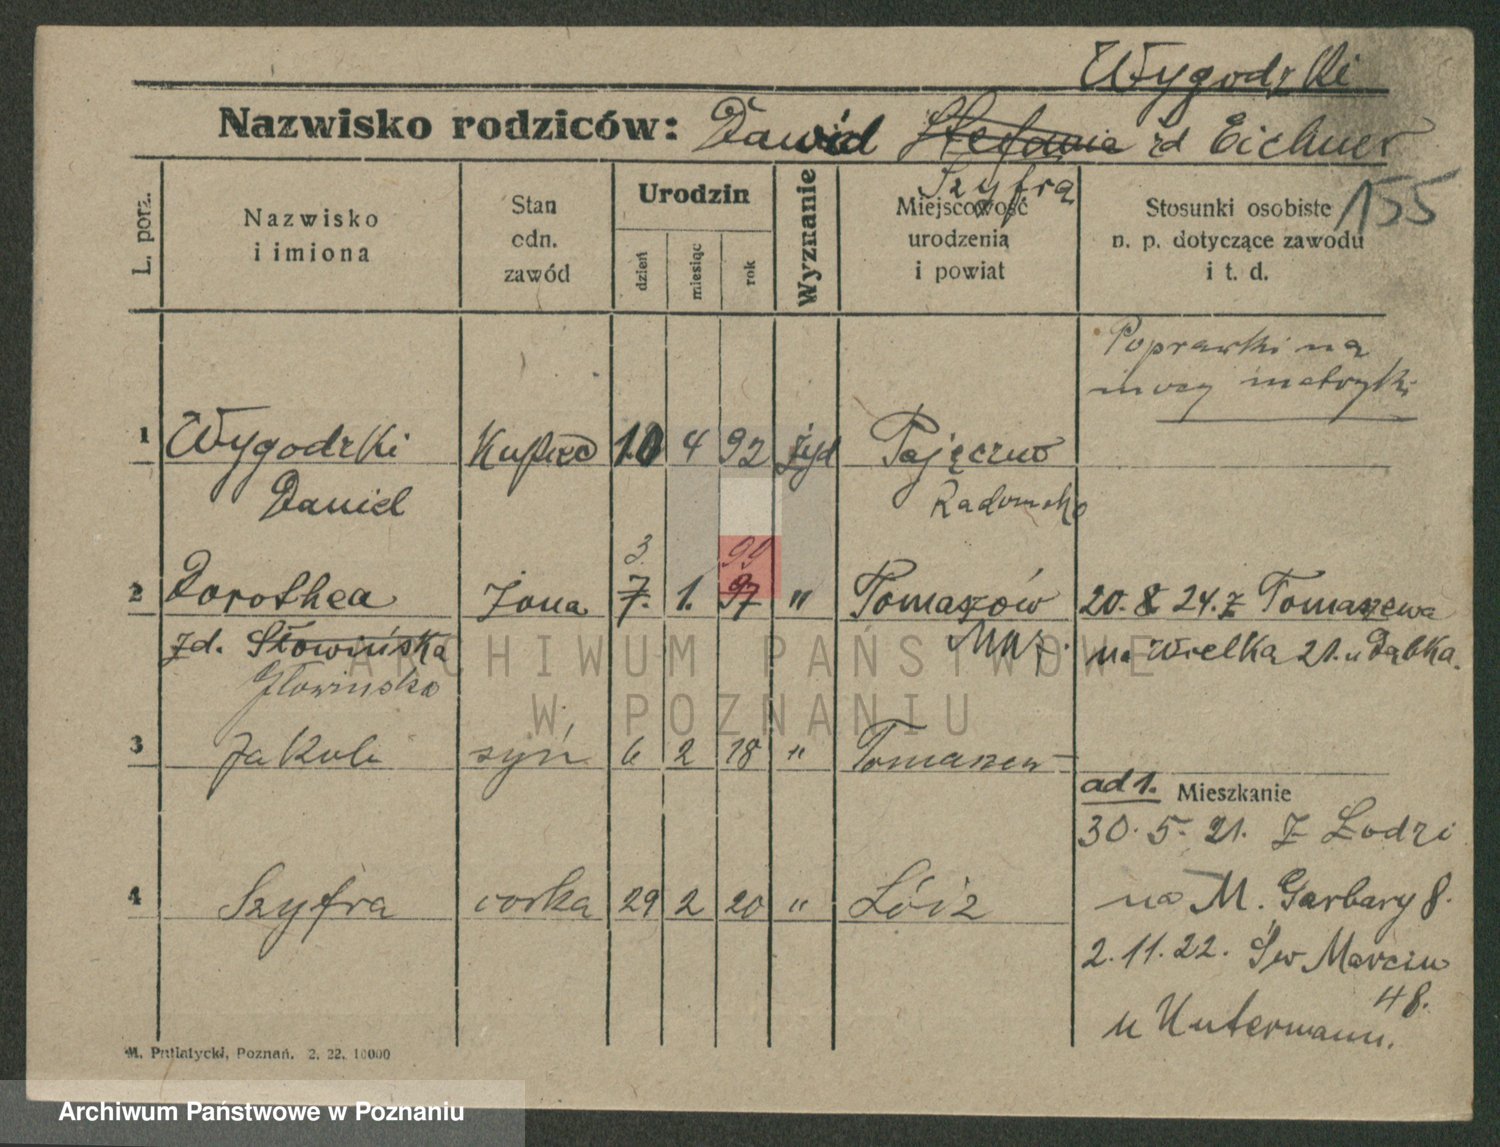 Wygodzki
Nazwisko rodziców: Dawid Stefania zd Eichner
Szyfra
155
L. porz.
Nazwisko i imiona
Stan cdn. zawód
Urodzin
dzień
miesiąc
rok
Wyznanie
Miejscowość urodzenia i powiat
Stosunki osobiste n. p. dotyczące zawodu i t. d.
Poprawki na
mocy metryki
1 Wygodzki Kupiec 10 4 92 żyd Pajęczno
Daniel Radomsko
3. 99
2 Dorothea żona 7. 1. 97 " Tomaszów 20. 8 24. z Tomaszewa
zd. Słowińska Maz. na Wielka 21. u Dąbka.
Głowińska
3 Jakub syn 6 2 18 " Tomaszew
ad 1. Mieszkanie
30. 5. 21. z Łodzi
4 Szyfra corka 29 2 20 " Łódź
na M. Garbary 8.
2. 11. 22. Św Marcin
48.
u Untermann.
M. Putiatycki, Poznań. 2. 22. 10000
ARCHIWUM PAŃSTWOWE
W POZNANIU
Archiwum Państwowe w Poznaniu